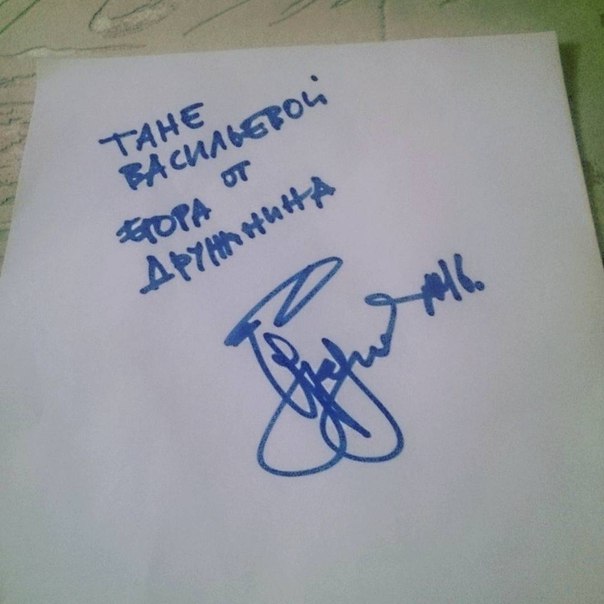 ТАНЕ
ВАСИЛЬЕВОЙ
ОТ
ЕГОРА
ДРУЖИНИНА